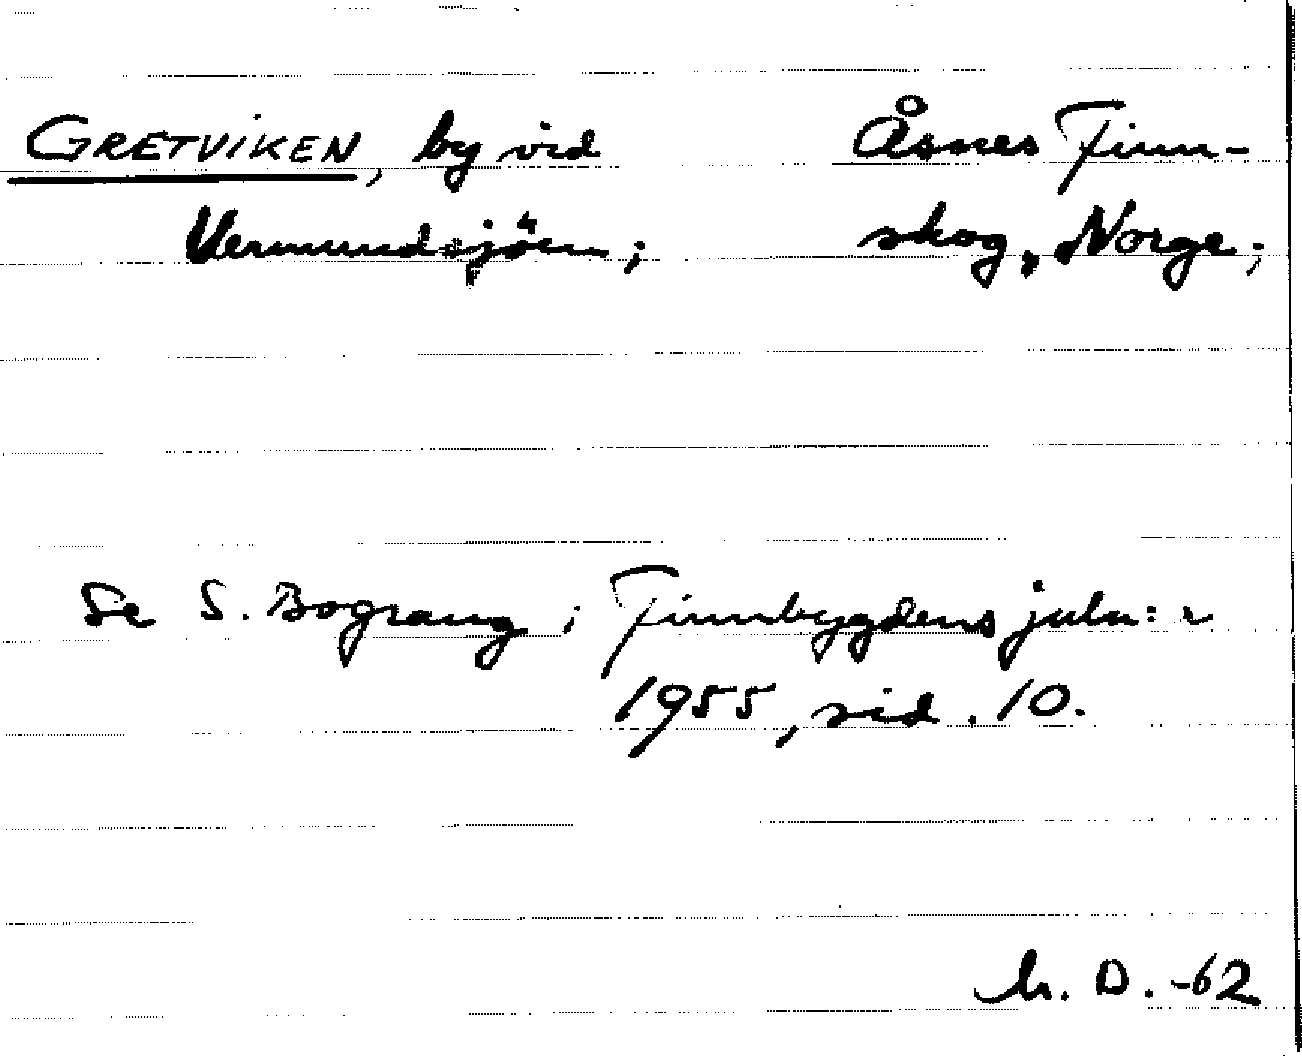 GRETVIKEN, by vid Åsnes Finn-
Vermundsjön; skog, Norge;
Se S. Bograng i Finnbygdens juln:r
1955, sid. 10.
h. D. -62